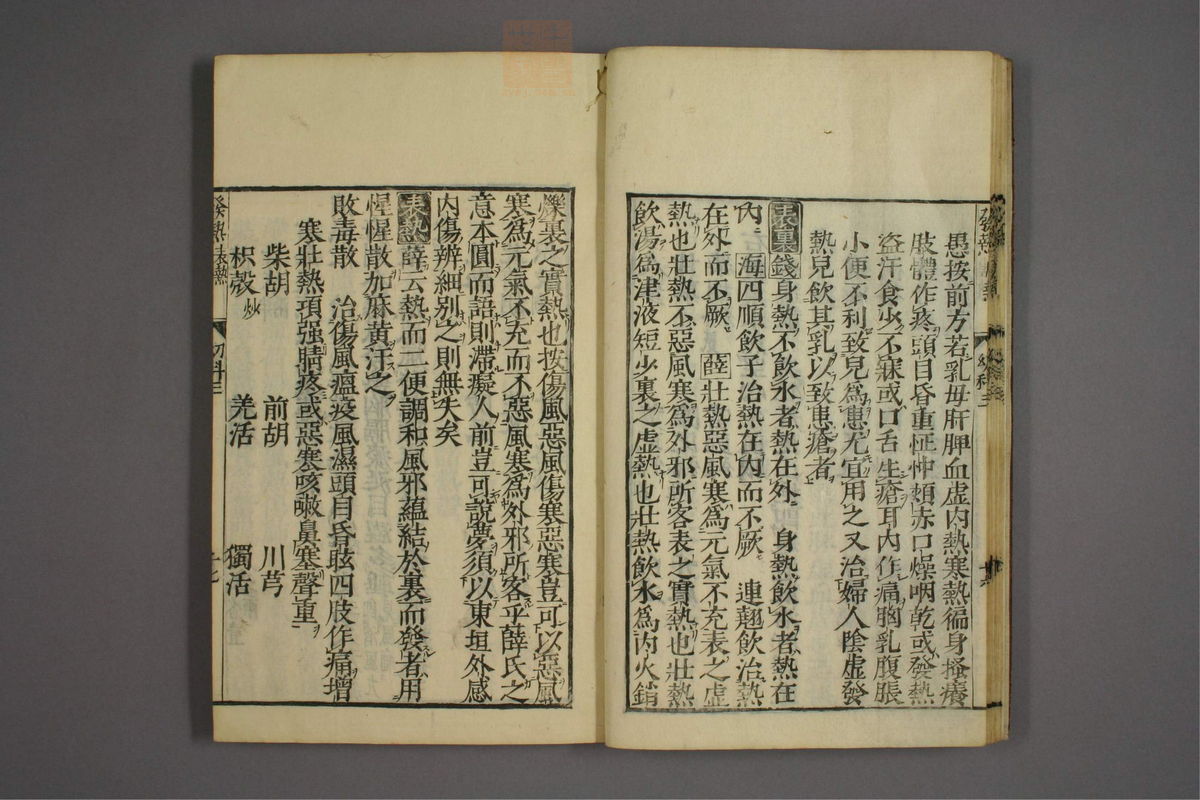 愚按前方若乳母肝脾血虛内熱寒熱徧身搔癢
肢體作疼頭目昏重怔忡頰赤口燥咽乾或發熱
盜汗食少不寐或口舌生瘡耳内作痛胸乳腹脹
小便不利致兒爲患尤宜用之又治婦人陰虛發
熱兒飲其乳以致患瘡者
表裏錢身熱不飲水者熱在外 身熱飲水者熱在
内 海四順飲子治熱在内而不厥 連翹飲治熱
在外而不厥 薛壯熱惡風寒爲元氣不充表之虛
熱也壯熱不惡風寒爲外邪所客表之實熱也壯熱
飲湯爲津液短少裏之虛熱也壯熱飲水爲内火銷
爍裏之實熱也按傷風惡風傷寒惡寒豈可以惡風
寒爲元氣不充而不惡風寒爲外邪所客乎薛氏之
意本圓而語則滯癡人前豈可說夢須以東垣外感
内傷辨細別之則無失矣
表熱薛云熱而二便調和風邪蘊結於裏而發者用
惺惺散加麻黃汗之
敗毒散 治傷風瘟疫風濕頭目昏眩四肢作痛增
寒壯熱項强腈疼或惡寒咳嗽鼻塞聲重
柴胡 前胡 川芎
枳殼炒 羌活 獨活
發熱 表熱 幼科三 十七